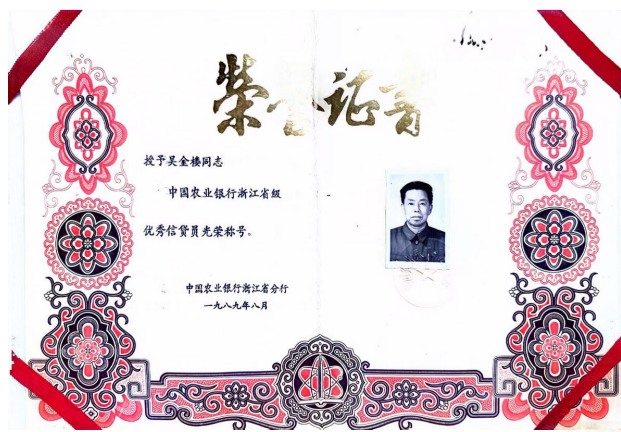 荣誉证书
授予吴金楼同志
中国农业银行浙江省级
优秀信贷员光荣称号。
中国农业银行浙江省分行
一九八九年八月